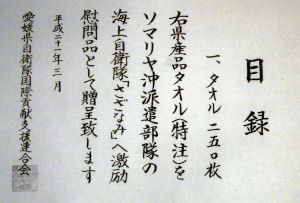 目録
一、タオル 二五〇枚
右県産品タオル(特注)を
ソマリヤ沖派遣部隊の
海上自衛隊「さざなみ」へ激励
慰問品として贈呈致します
平成二十一年三月
愛媛県自衛隊国際貢献支援連合会